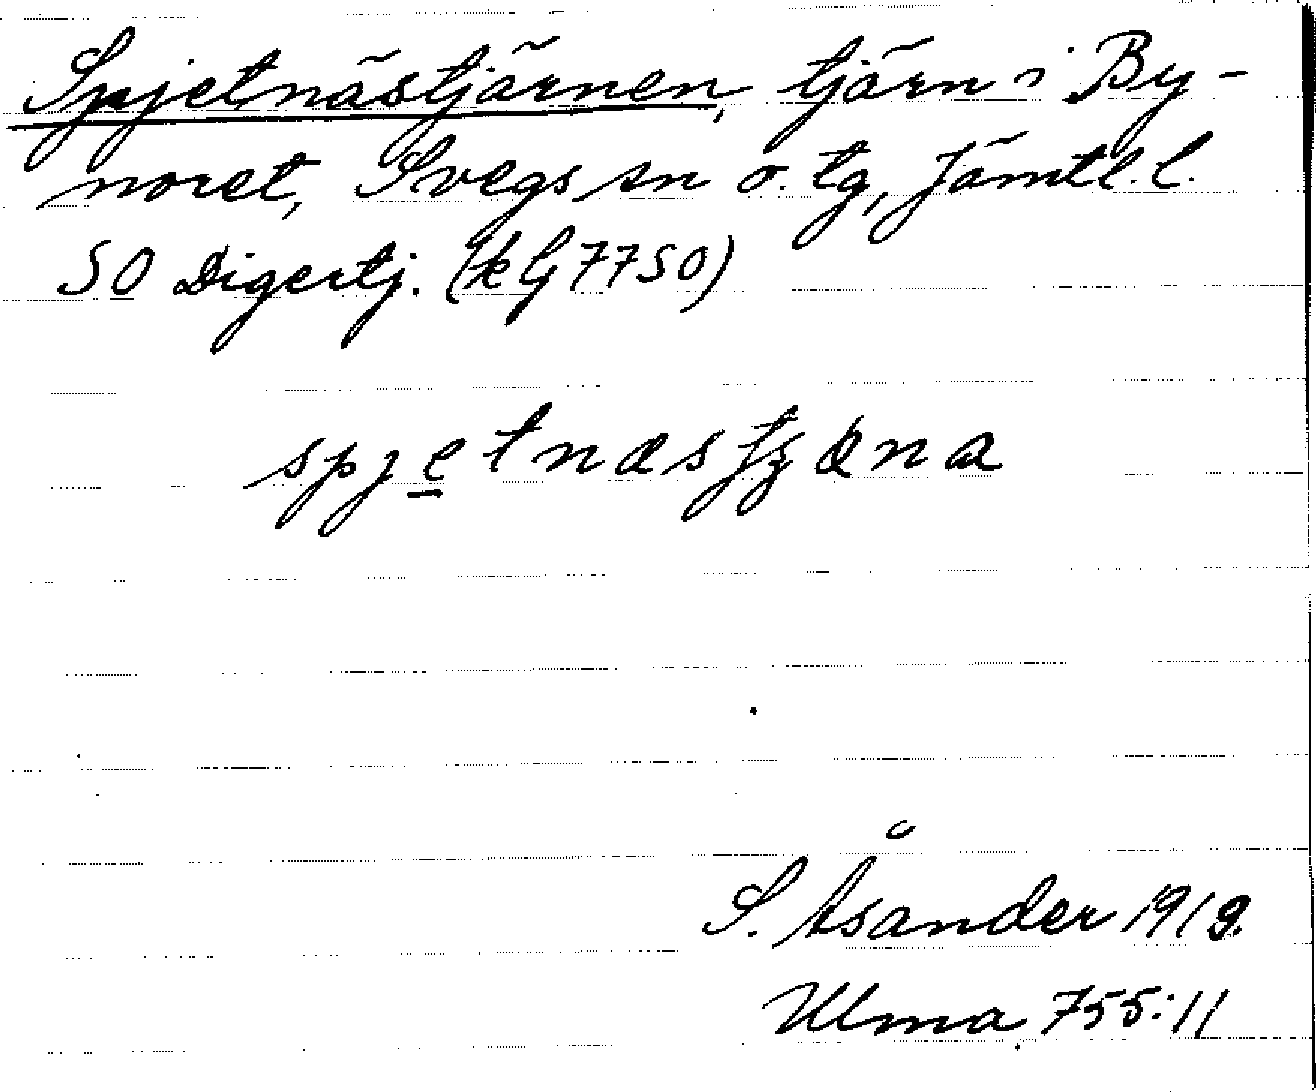 Spjetnästjärnen, tjärn i By-
noret, Svegs sn o. tg, Jämtl. l.
SO Digertj. (k G 7750)
spjetnæstʒæna
S. Åsander 1919.
Ulma 755:11